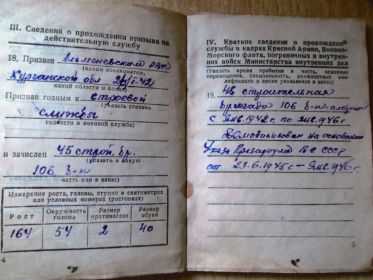 III. Сведения о прохождении призыва на
действительную службу
18. Призван Альменевском РВК
(каким военкоматом,
Курганской обл 1942
какой области и когда)
Признан годным к строевой
(указать степень
службы
годности к военной службе)
и зачислен 45 строй. бр.
(указать в какую
106 б-н
часть или в запас)
Измерения роста, головы, ступни в сантиметрах
или условных номерах (ростовках)
Рост Окружность головы Размер противогаза Размер обуви
164 54 2 40
4
IV. Краткие сведения о прохождении
службы в кадрах Красной Армии, Военно-
Морского флота, пограничных и внутрен-
них войск Министерства внутренних дел
(Указать время прибытия в часть, основные
перемещения, специальность, должностные ква-
и время увольнения в запас)
19. строительная
бригада 106 б-н
с 1942г. по 1946г.
Демобилизован на основании
Указ Президиума ВС СССР
от 23.6.1945г
5